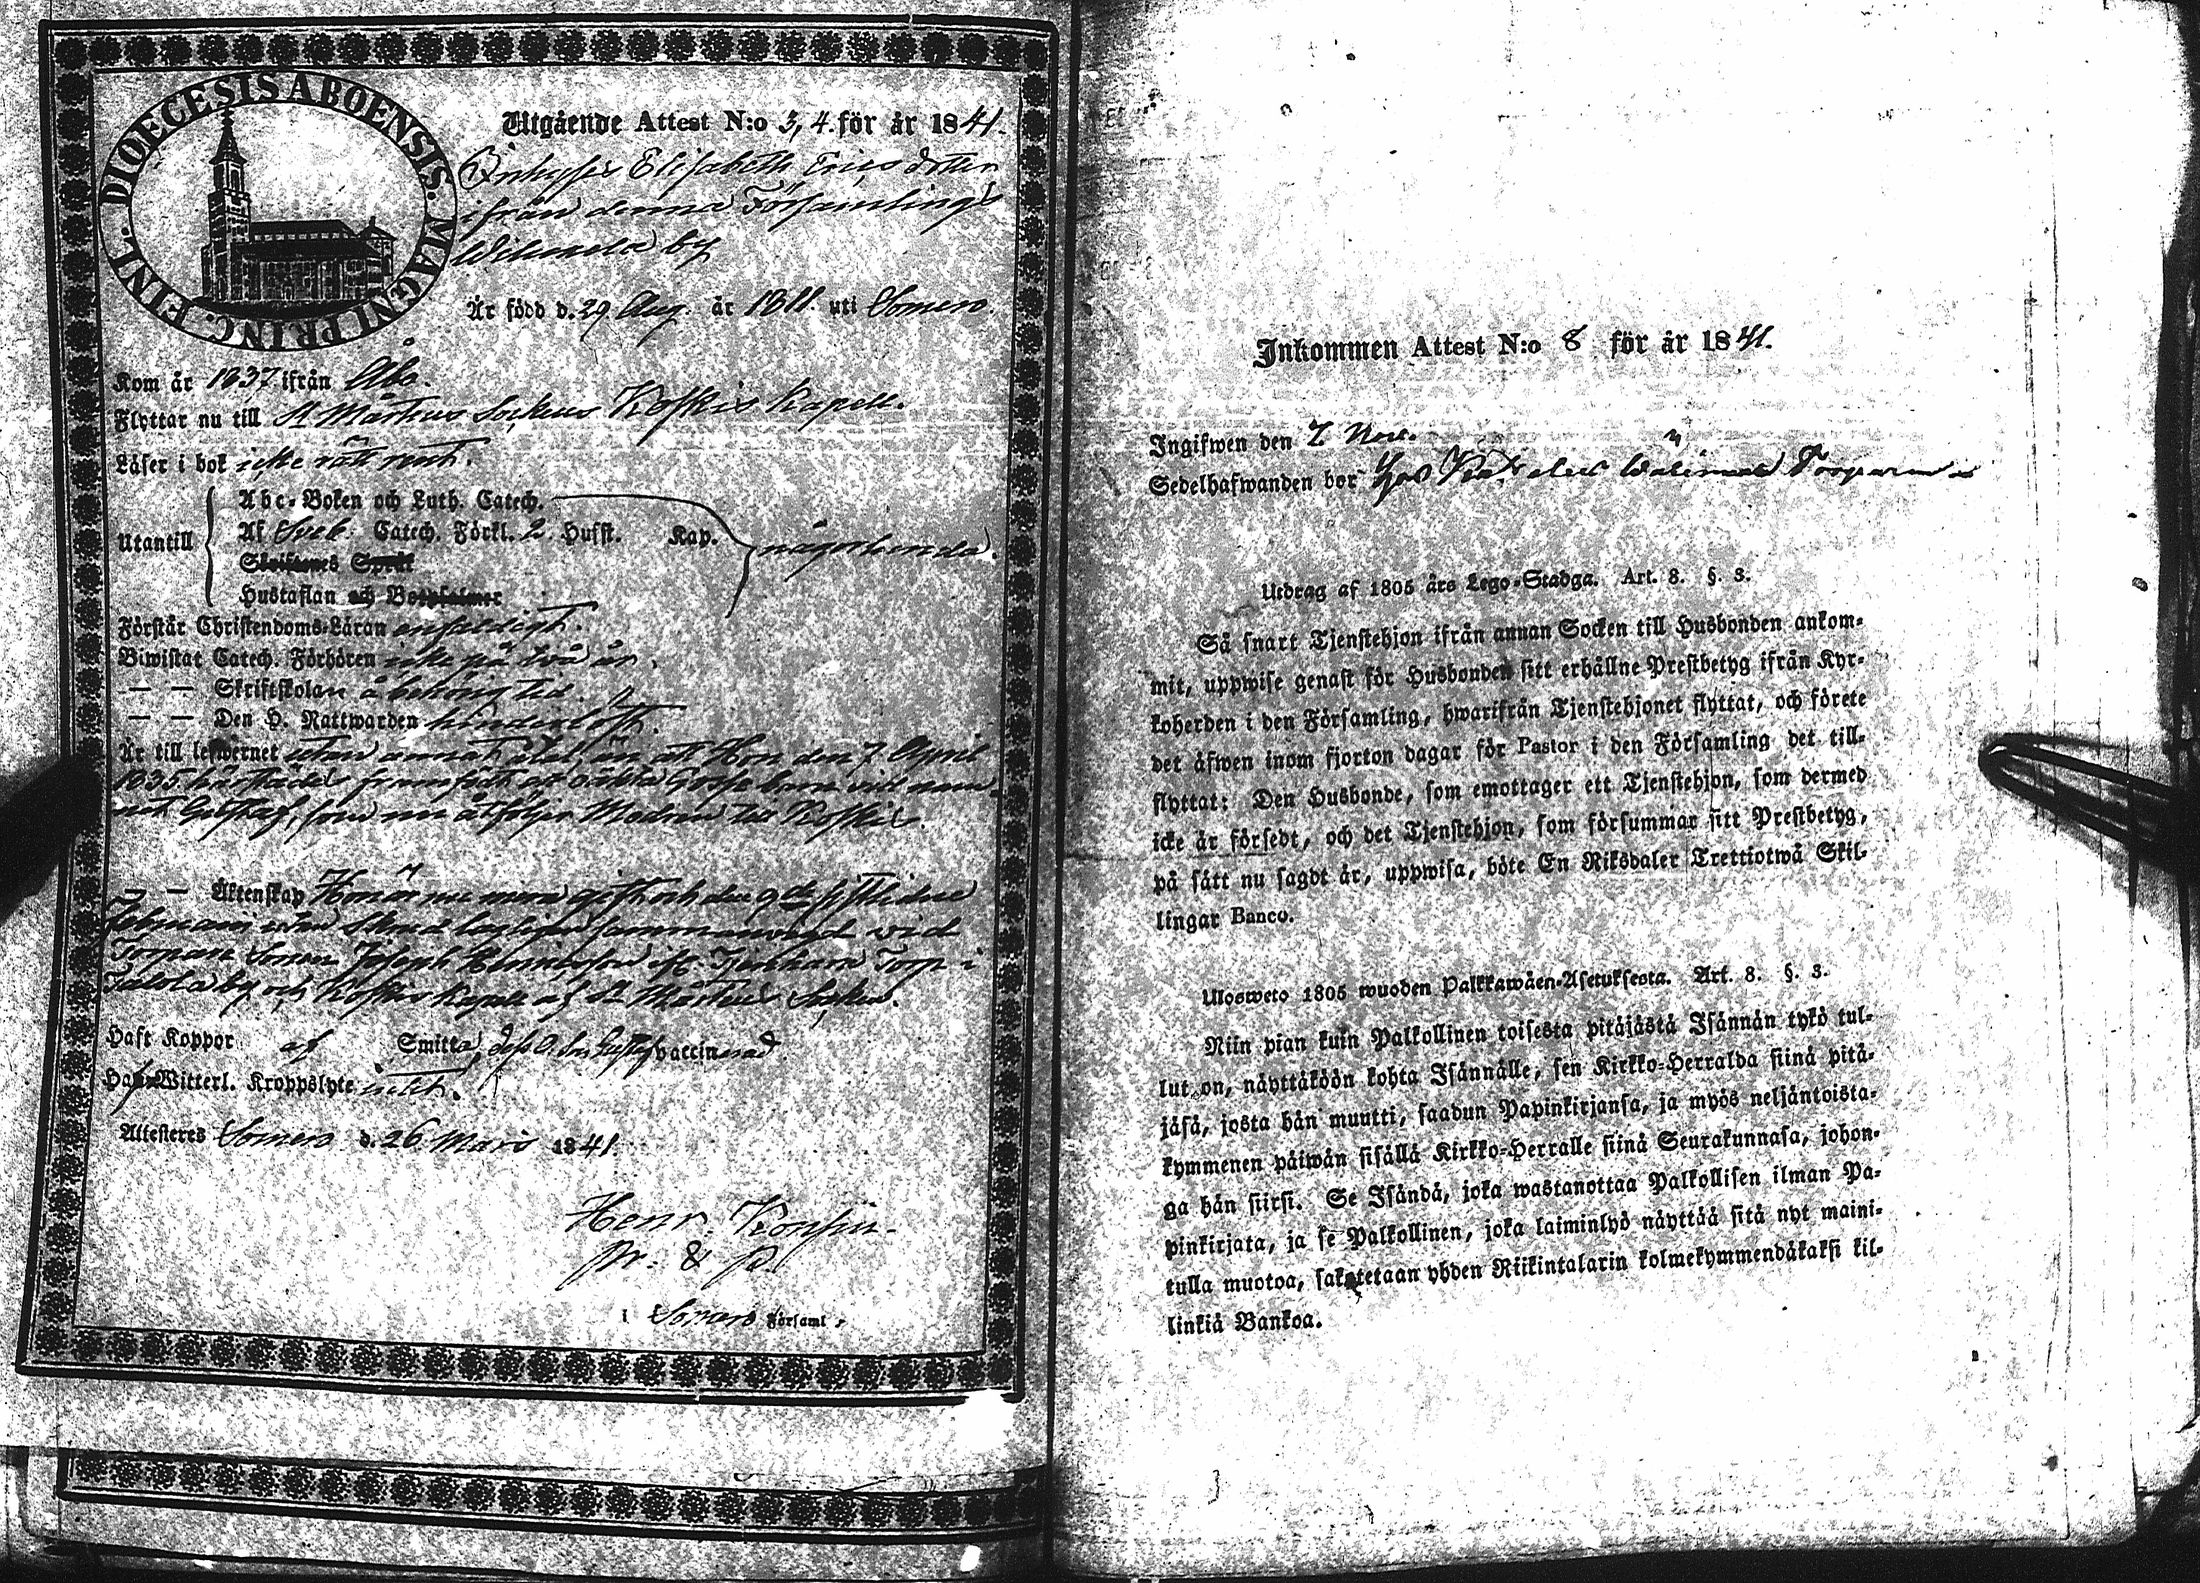 DIOECESIS ABOENSIS. MAGNI PRINC. FINL.
Utgående Attest N:o 3, 4. för år 1841.
Inhyses Elisabeth Ericsdotter
ifrån denna Församlings
by
Är född d. 29 Aug. år 1811. uti Somero.
Kom år 1837 ifrån Åbo.
Flyttar nu till St Mårtens Sockens Koskis Kapell.
Läser i bok icke rätt rent.
Utantill
Abc-Boken och Luth. Catech.
Af Sveb. Catech. Förkl. 2. Hufst. Kap.
någorlunda.
Skriftenes Språk
Hustaflan och Botpsalmer
Förstår Christendoms-Läran enfaldigt.
Biwistat Catech. Förhören icke på två år.
— — Skriftskolan å behörig tid.
— — Den H. Nattwarden hinderlöst.
Är till lefwernet utan annat än att Hon den 7 April
1835 härstädes framfödt ett oäkta Gosse barn vid nam-
net Gustaf, som nu åtföljer Modren till Koskis
— — Äktenskap Hon är nu mera gift och den 9de sistlidne
Februarii utan lagligen sammanvigd vid
Torpare Sonen Joseph Torp i
Talola by och Koskis Kapell af St Mårtens Socken.
Haft Koppor af Smitta, dess O. Son Gustaf vaccinerad
Hafver Witterl. Kroppslyte intet.
Attesteras Somero d. 26 Mars 1841.
Henr.
Pr. & P.
i Somero Församl.
Inkommen Attest N:o 8 för år 1841.
Ingifwen den 7 Nov.
Sedelhafwanden bor hos
Utdrag af 1805 års Lego-Stadga. Art. 8. §. 3.
Så snart Tjenstehjon ifrån annan Socken till Husbonden ankom-
mit, uppwise genast för Husbonden sitt erhållne Prestbetyg ifrån Kyr-
koherden i den Församling, hwarifrån Tjenstehjonet flyttat, och förete
det äfwen inom fjorton dagar för Pastor i den Församling det till-
flyttat: Den Husbonde, som emottager ett Tjenstehjon, som dermed
icke är försedt, och det Tjenstehjon, som försummar sitt Prestbetyg,
på sätt nu sagdt är, uppwisa, böte En Riksdaler Trettiotwå Skil-
lingar Banco.
Ulosweto 1805 wuoden Palkkawäen-Asetuksesta. Art. 8. §. 3.
Niin pian kuin Palkollinen toisesta pitäjästä Isännän tykö tul-
lut on, näyttäköön kohta Isännälle, sen Kirkko-Herralda siinä pitä-
jäsä, josta hän muutti, saadun Papinkirjansa, ja myös neljäntoista-
kymmenen päiwän sisällä Kirkko-Herralle siinä Seurakunnasa, johon-
ga hän siirsi. Se Isändä, joka wastanottaa Palkollisen ilman Pa-
pinkirjata, ja se Palkollinen, joka laiminlyö näyttää sitä nyt maini-
tulla muotoa, sakotetaan yhden Riikintalarin kolmekymmendäkaksi kil-
linkiä Bankoa.